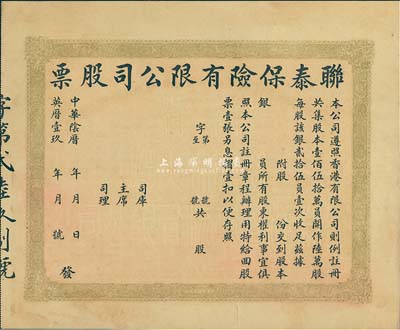 聯泰保險有限公司股票
本公司遵照香港有限公司則例註冊
共集股本壹佰伍拾萬員開作陸萬股
每股該銀貳拾伍員壹次收足茲據
附股 份交到股本
銀 員所有股東權利事宜俱
照本公司註冊章程辦理用特給回股
票壹張另息摺壹扣以便存照
字第 號
至 號共 股
司庫
主席
司理
中華陰曆 年 月 日
英曆壹玖 年 月 號 發
字第貳陸玖捌號
上海陽明拍